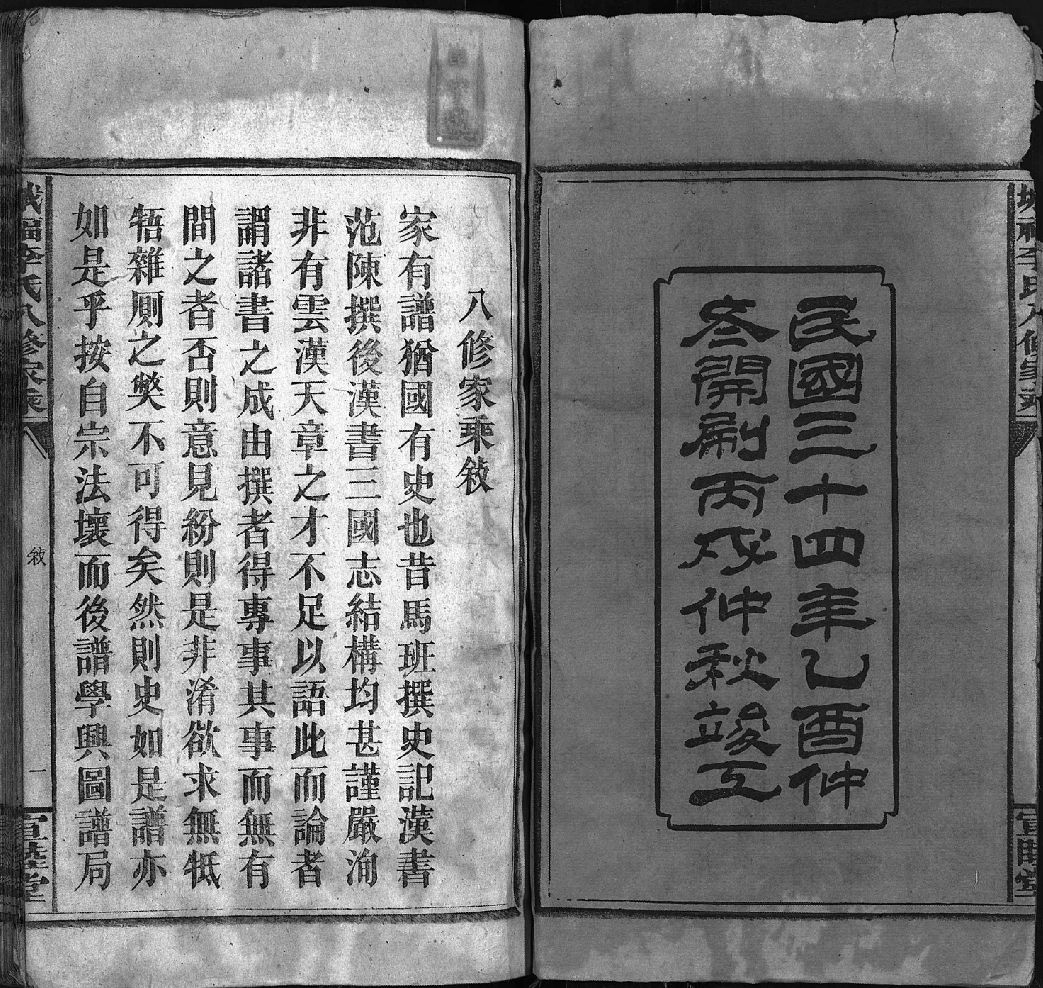 民國三十四年乙酉仲
冬開刷丙戌仲秋竣工
八修家乘敘
家有譜猶國有史也昔馬班撰史記漢書
范陳撰後漢書三國志結構均甚謹嚴洵
非有雲漢天章之才不足以語此而論者
謂諸書之成由撰者得專事其事而無有
間之者否則意見紛則是非淆欲求無牴
牾雜厠之獘不可得矣然則史如是譜亦
如是乎按自宗法壞而後譜學興圖譜局
李氏八修家乘
敘
一
堂